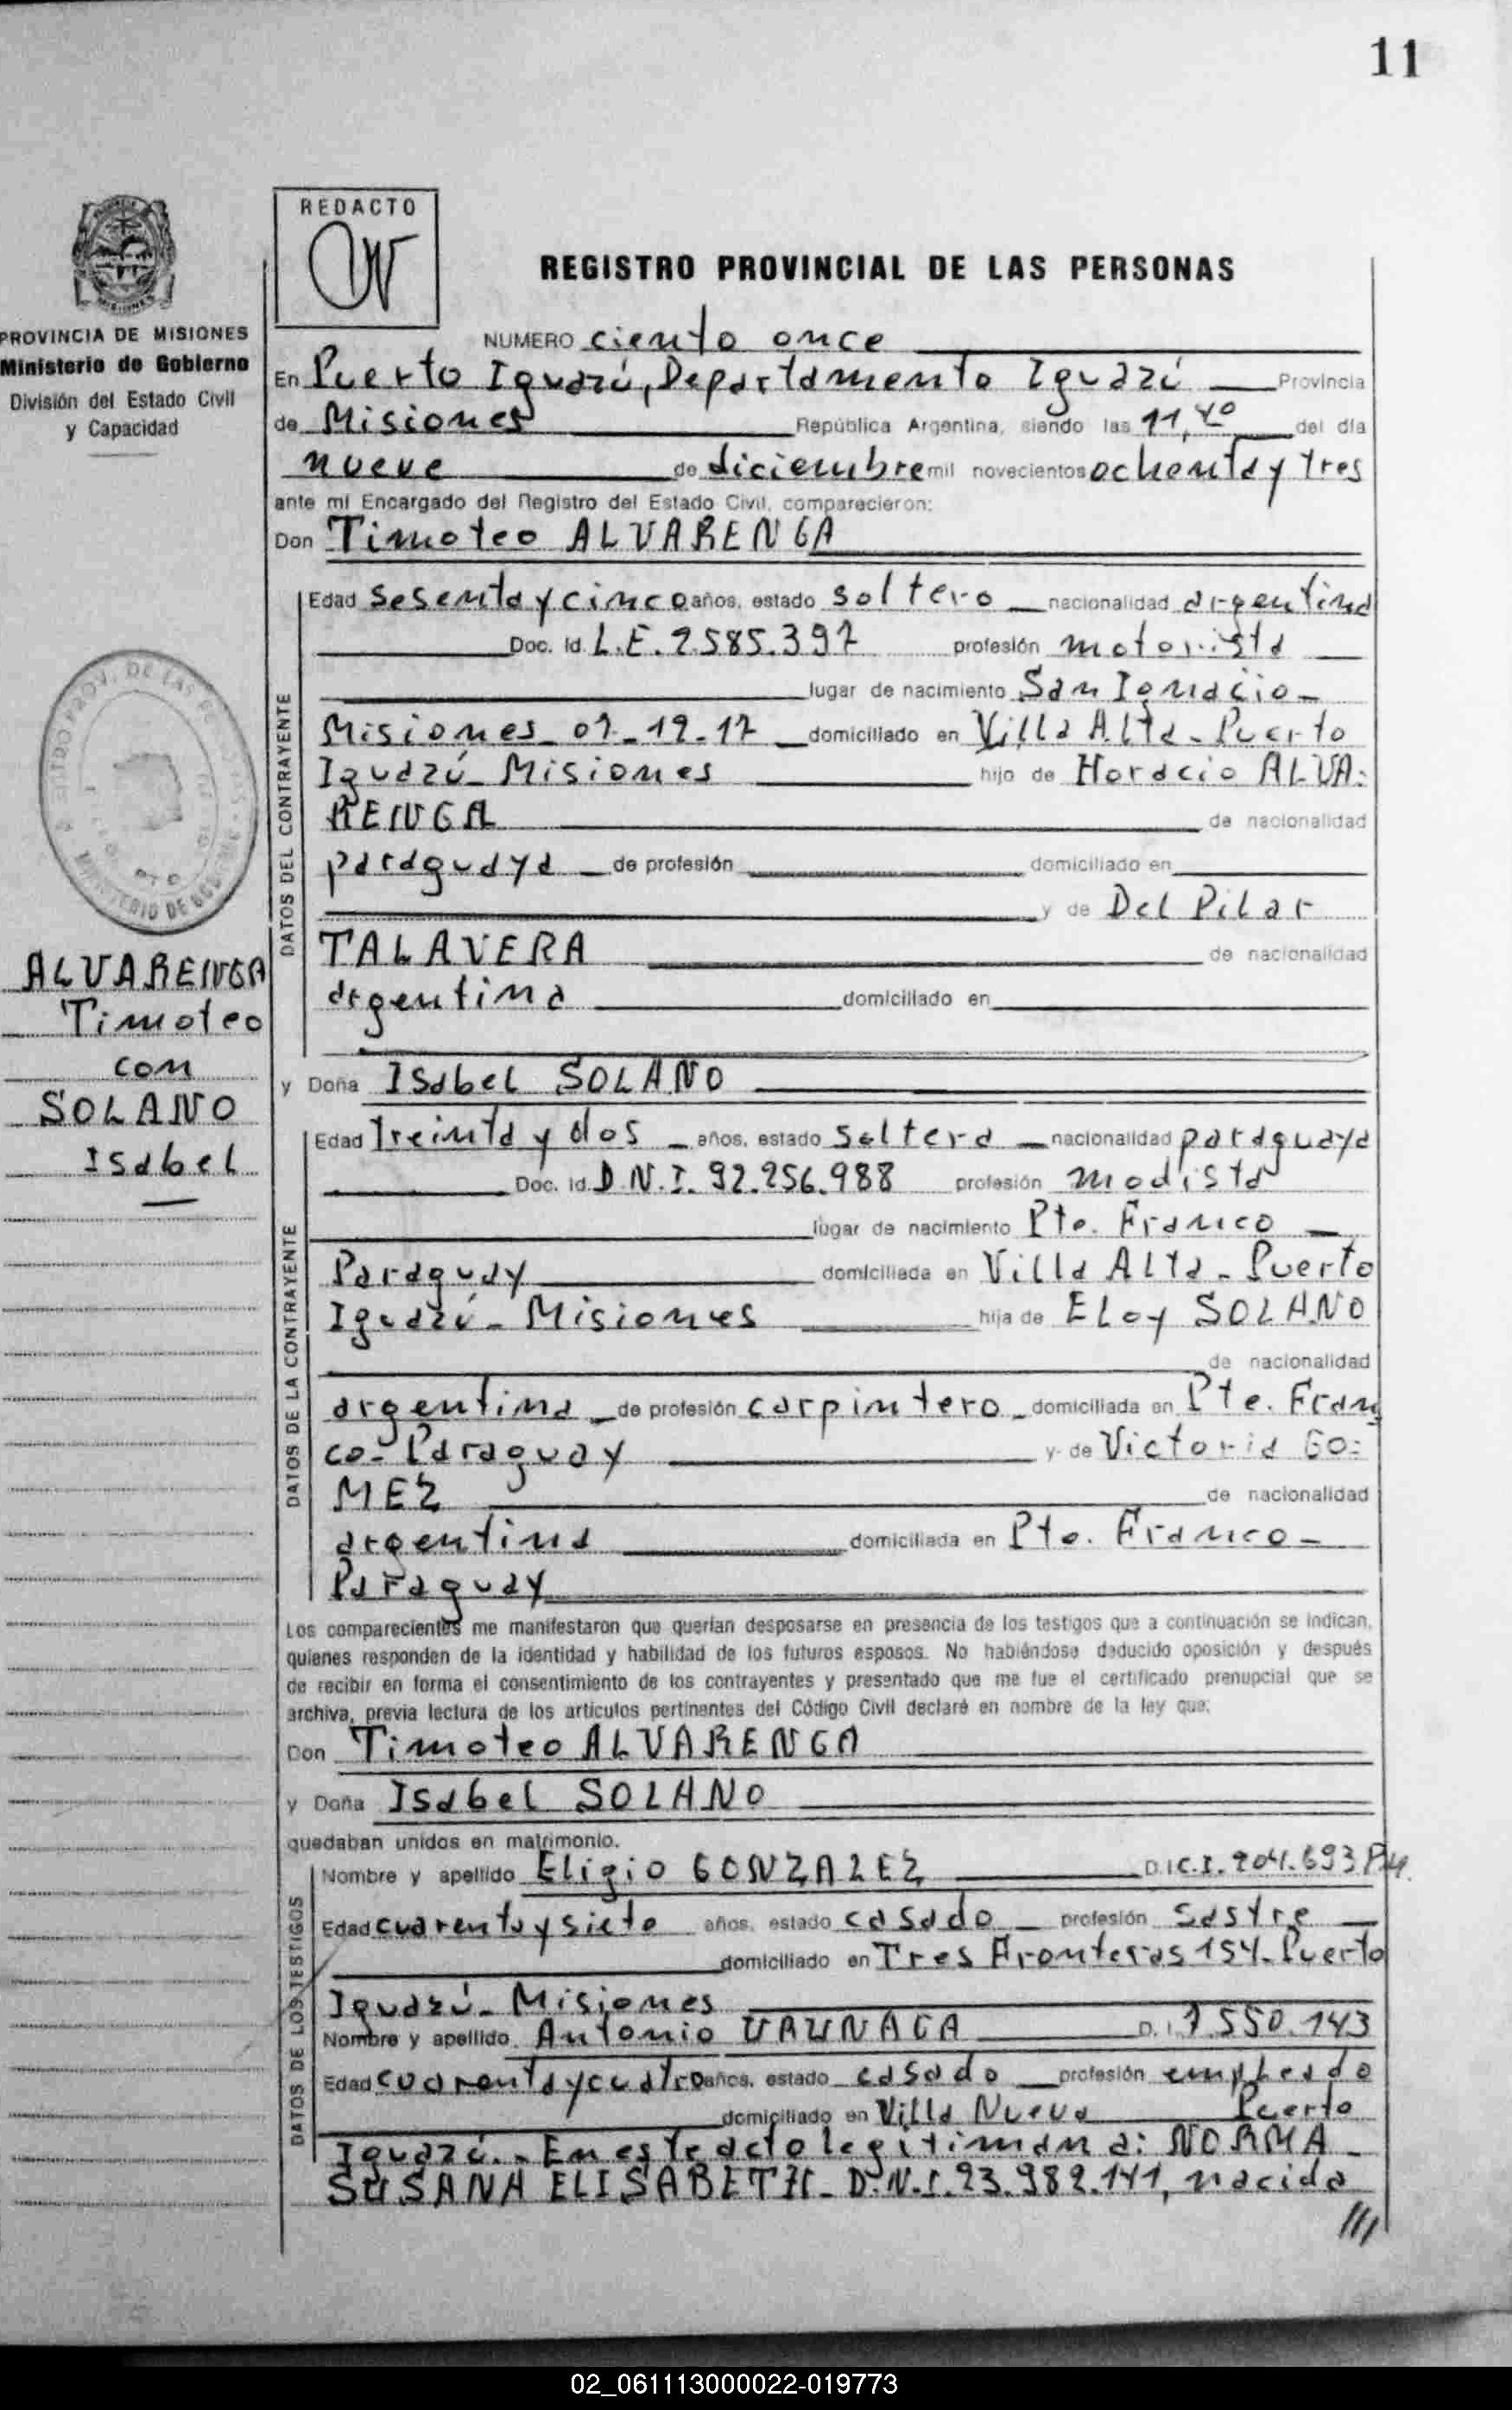 11
REDACTO
REGISTRO PROVINCIAL DE LAS PERSONAS
PROVINCIA DE MISIONES
Ministerio de Gobierno
División del Estado Civil
y Capacidad
NUMERO ciento once
En Puerto Iguazú, Departamento Iguazú Provincia
de Misiones República Argentina, siendo las 11,40 del día
nueve de diciembre mil novecientos ochenta y tres
ante mi Encargado del Registro del Estado Civil, comparecieron:
Don Timoteo ALVARENGA
DATOS DEL CONTRAYENTE
Edad sesenta y cinco años, estado soltero nacionalidad argentina
Doc. Id. L.E. 2.585.397 profesión motorista
lugar de nacimiento San Ignacio-
Misiones domiciliado en Villa Alta- Puerto
Iguazú- Misiones hijo de Horacio ALVA-
RENGA de nacionalidad
paraguaya de profesión domiciliado en
y de Del Pilar
TALAVERA de nacionalidad
argentina domiciliado en
ALVARENGA
Timoteo
con
SOLANO
Isabel
y Doña Isabel SOLANO
DATOS DE LA CONTRAYENTE
Edad treinta y dos años, estado soltera nacionalidad paraguaya
Doc. Id. D.N.I. 92.256.988 profesión modista
lugar de nacimiento Pto. Franco
Paraguay domiciliada en Villa Alta- Puerto
Iguazú- Misiones hija de Eloy SOLANO
de nacionalidad
argentina de profesión carpintero domiciliada en Pte. Fran
co- Paraguay y de Victoria GO-
MEZ de nacionalidad
argentina domiciliada en Pto. Franco-
Paraguay
Los comparecientes me manifestaron que querían desposarse en presencia de los testigos que a continuación se indican,
quienes responden de la identidad y habilidad de los futuros esposos. No habiéndose deducido oposición y después
de recibir en forma el consentimiento de los contrayentes y presentado que me fue el certificado prenupcial que se
archiva, previa lectura de los artículos pertinentes del Código Civil declaré en nombre de la ley que:
Don Timoteo ALVARENGA
y Doña Isabel SOLANO
quedaban unidos en matrimonio.
DATOS DE LOS TESTIGOS
Nombre y apellido Eligio GONZALEZ D.I C.I. 204.693
Edad cuarenta y siete años, estado casado profesión Sastre
domiciliado en Tres Fronteras 154- Puerto
Iguazú- Misiones
Nombre y apellido Antonio D.I. 7.550.143
Edad cuarenta y cuatro años, estado casado profesión empleado
domiciliado en Villa Nueva Puerto
Iguazú.- En este acto legitiman a: NORMA
SUSANA ELISABETH- D.N.I. 23.982.141, nacida
///
02_061113000022-019773